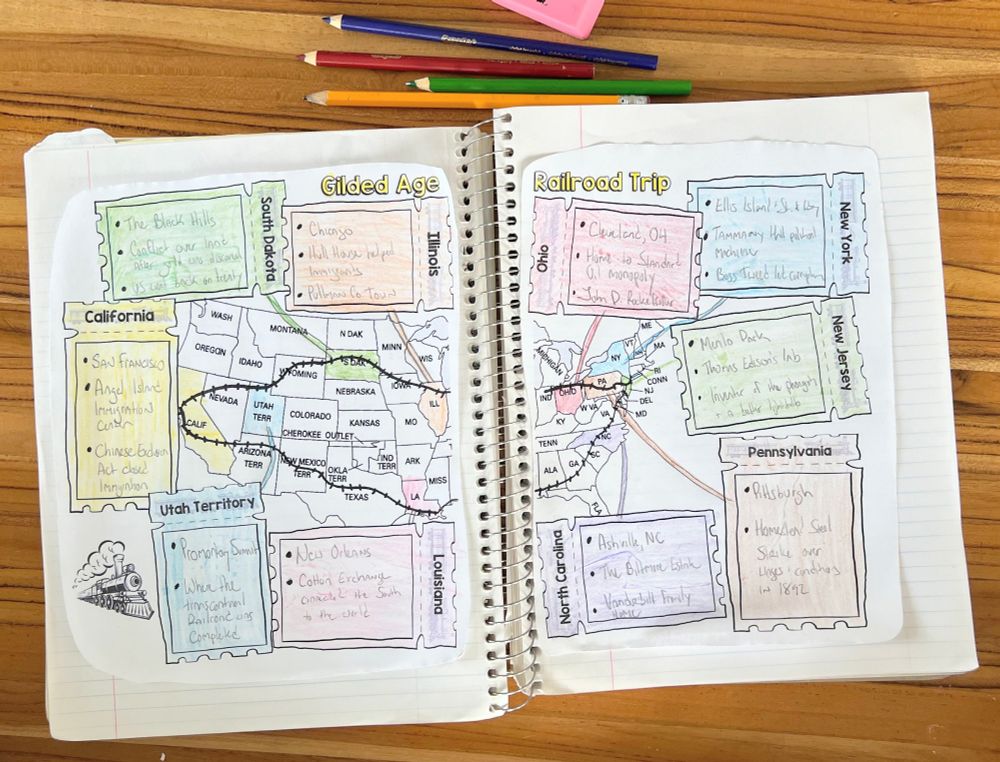 Gilded Age
Railroad Trip
South Dakota
The Black Hills
Conflict over land
after gold was
US went back on treaty
Illinois
Chicago
Hull House helped
Immigrants
Pullman Co Town
Ohio
Cleveland, OH
Home to Standard
Oil monopoly
John D. Rockefeller
New York
Ellis Island
Tammany Hall political
machine
Boss Tweed
California
San Francisco
Angel Island
Immigration
Center
Chinese Exclusion
Act closed
Immigration
New Jersey
Menlo Park
Lab
Utah Territory
Promontory Summit
Where the
Railroad was
Completed
New Orleans
Cotton Exchange
connected the South
to the world
Louisiana
North Carolina
The Biltmore Estate
Vanderbilt Family
HOME
Pennsylvania
Pittsburgh
Homestead Steel
Strike over
IN 1892
WASH
OREGON
MONTANA
IDAHO
N DAK
S DAK
MINN
WIS
WYOMING
NEBRASKA
IOWA
NEVADA
CALIF
UTAH
TERR
COLORADO
KANSAS
MO
ILL
CHEROKEE OUTLET
ARIZONA
TERR
NEW MEXICO
TERR
OKLA
TERR
IND
TERR
ARK
TEXAS
LA
MISS
MICHIGAN
IND
OHIO
PA
NY
VT
ME
MA
RI
CONN
NJ
DEL
MD
W VA
VA
KY
TENN
NC
SC
ALA
GA
FLA